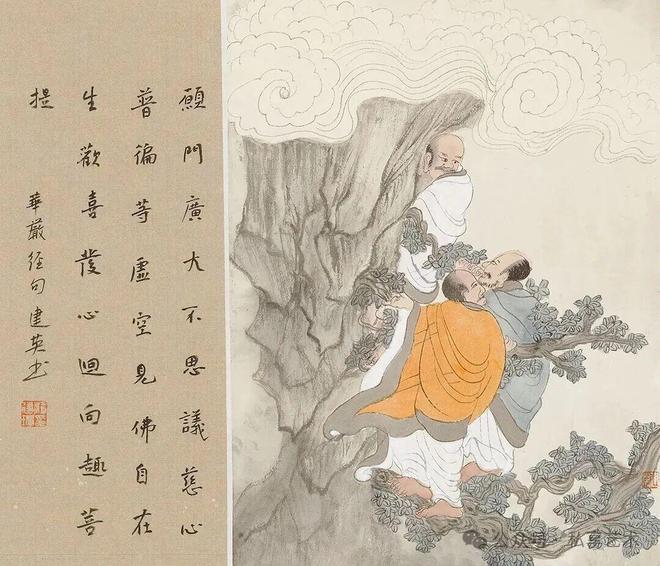 願門廣大不思議慈心
普徧等虛空見佛自在
生歡喜發心迴向趣菩
提
華嚴經句建英书
公众号·私享艺术